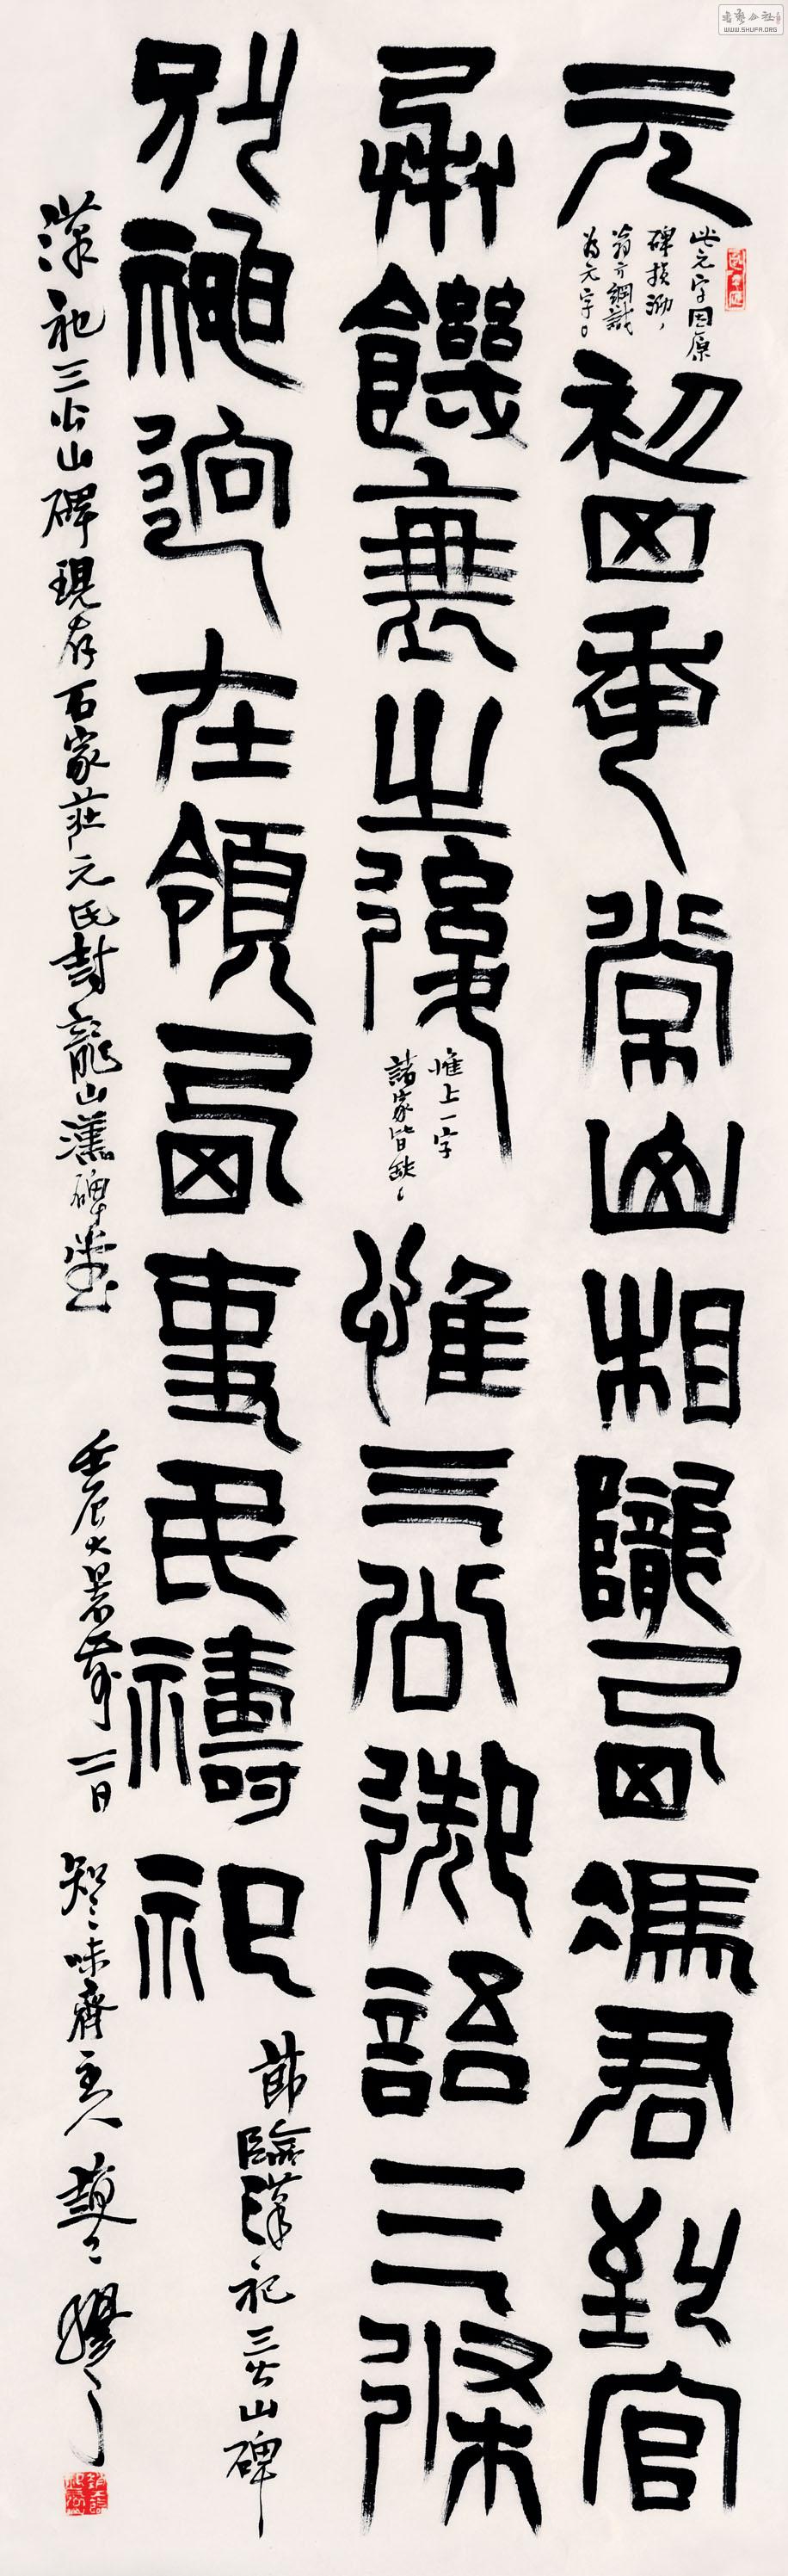 元初四年常山相隴西馮君到官
此元字因原
碑損泐，
翁方綱識
為元字。
承饑衰之後惟三公御語三條
惟上一字
諸家皆缺、
別神迥在領西吏民禱祀
節臨漢祀三公山碑
漢祀三公山碑現存石家莊元氏封龍山漢碑堂
壬辰大暑前一日
味齋主人
WWW.SHUFA.ORG